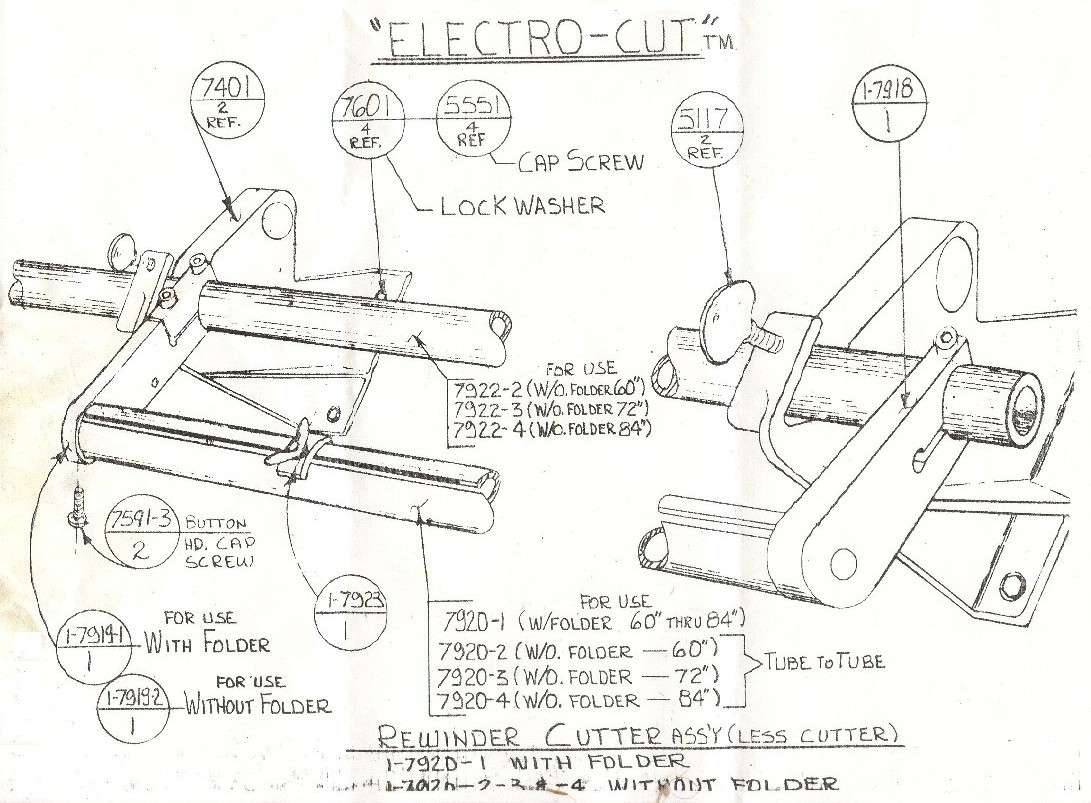 "ELECTRO-CUT"™
7401
2
REF.
7601
4
REF.
5551
4
REF
CAP SCREW
LOCK WASHER
5117
2
REF.
1-7918
1
FOR USE
7922-2 (W/O. FOLDER 60")
7922-3 (W/O. FOLDER 72")
7922-4 (W/O. FOLDER 84")
7591-3
2
BUTTON
HD. CAP
SCREW
1-7923
1
FOR USE
WITH FOLDER
1-7919-1
1
FOR USE
WITHOUT FOLDER
1-7919-2
1
FOR USE
7920-1 (W/FOLDER 60" THRU 84")
7920-2 (W/O. FOLDER — 60")
7920-3 (W/O. FOLDER — 72")
7920-4 (W/O. FOLDER — 84")
TUBE TO TUBE
REWINDER CUTTER ASS'Y (LESS CUTTER)
1-7920-1 WITH FOLDER
1-7920-2-3 & -4 WITHOUT FOLDER